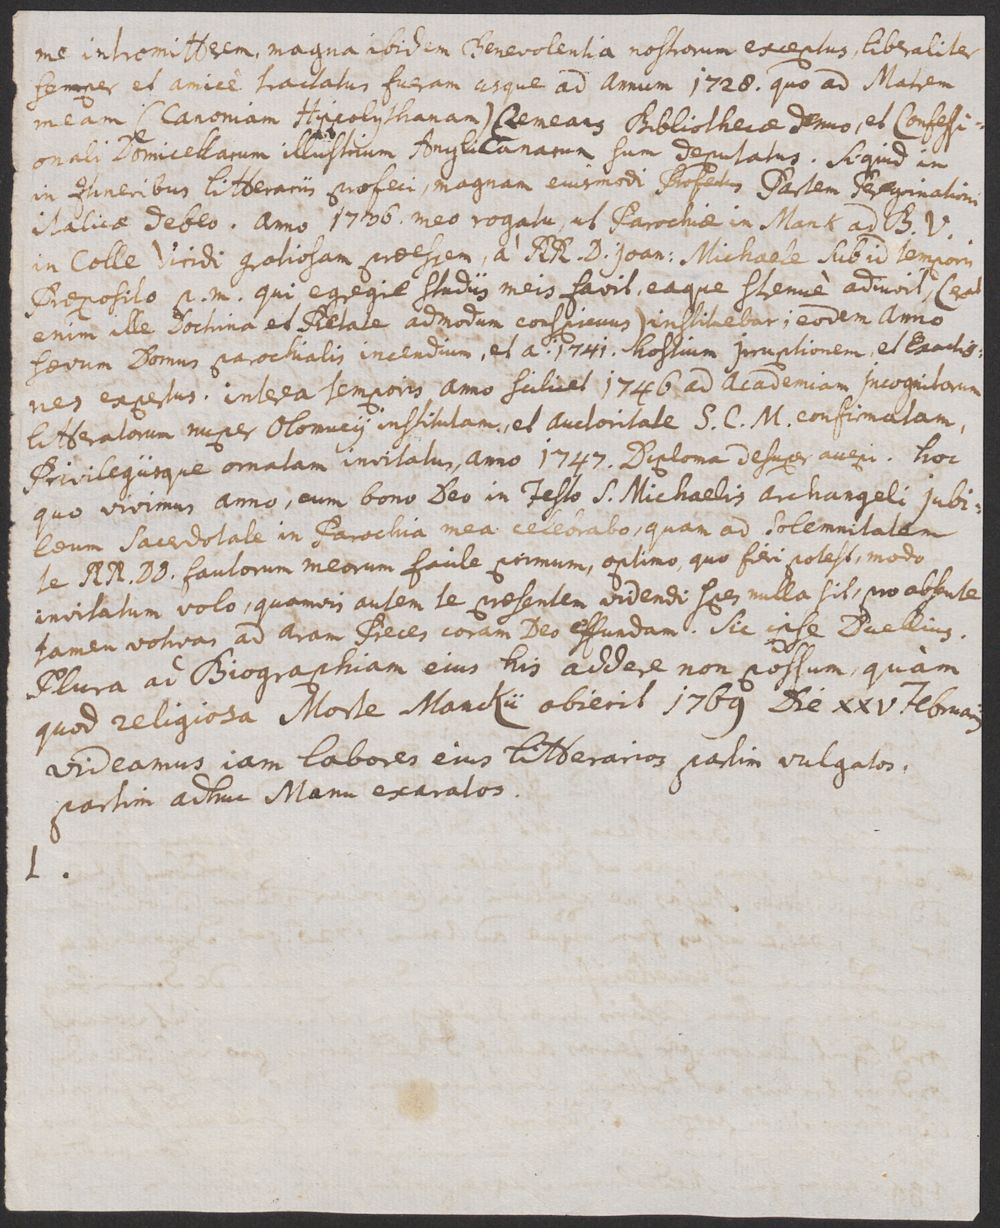 me intromitterem, magna ibidem Benevolentia nostrorum exceptus, liberaliter
semper et amicè tractatus fueram usque ad Annum 1728. quo ad Matrem
meam (Canoniam Hippolythanam) remeans Bibliothecæ denuo, et Confessi-
onali Domicellarum illustrium Anglicanarum sum deputatus. Si quid in
in Itineribus litterariis profeci, magnam eiusmodi Profectus Partem Peregrinationi
italicæ debeo. Anno 1736. meo rogatu, ut Parochiæ in Mank ad B. V.
in Colle Viridi gratiosam præessem, à RR. D. Joan: Michaele sub id temporis
Præposito p. m. qui egregiè studiis meis favit, eaque strenuè adiuvit, (erat
enim ille Doctrina et Pietate admodum conspicuus) instituebar; eodem Anno
sævum Domus parochialis incendium, et a. 1741. hostium irruptionem, et Exactio-
nes expertus. interea temporis Anno scilicet 1746 ad Academiam Incognitorum
litteratorum nuper Olomucij institutam, et auctoritate S. C. M. confirmatam,
Privilegiisque ornatam invitatus, anno 1747. Diploma desuper accepi. hoc
quo vivimus anno, cum bono Deo in Festo S. Michaelis archangeli jubi-
læum Sacerdotale in Parochia mea celebrabo, quam ad solemnitatem
te RR. DD. fautorum meorum facile primum, optimo, quo fieri potest, modo
invitatum volo, quamvis autem te præsentem videndi spes nulla sit, pro absente
tamen votivas ad aram Preces coram Deo effundam. Sic ipse Duellius.
Plura ad Biographiam eius his addere non possum, quàm
quod religiosa Morte Manckii obierit 1769 Die XXV Februarii
videamus iam labores eius litterarios partim vulgatos,
partim adhuc Manu exaratos.
1.